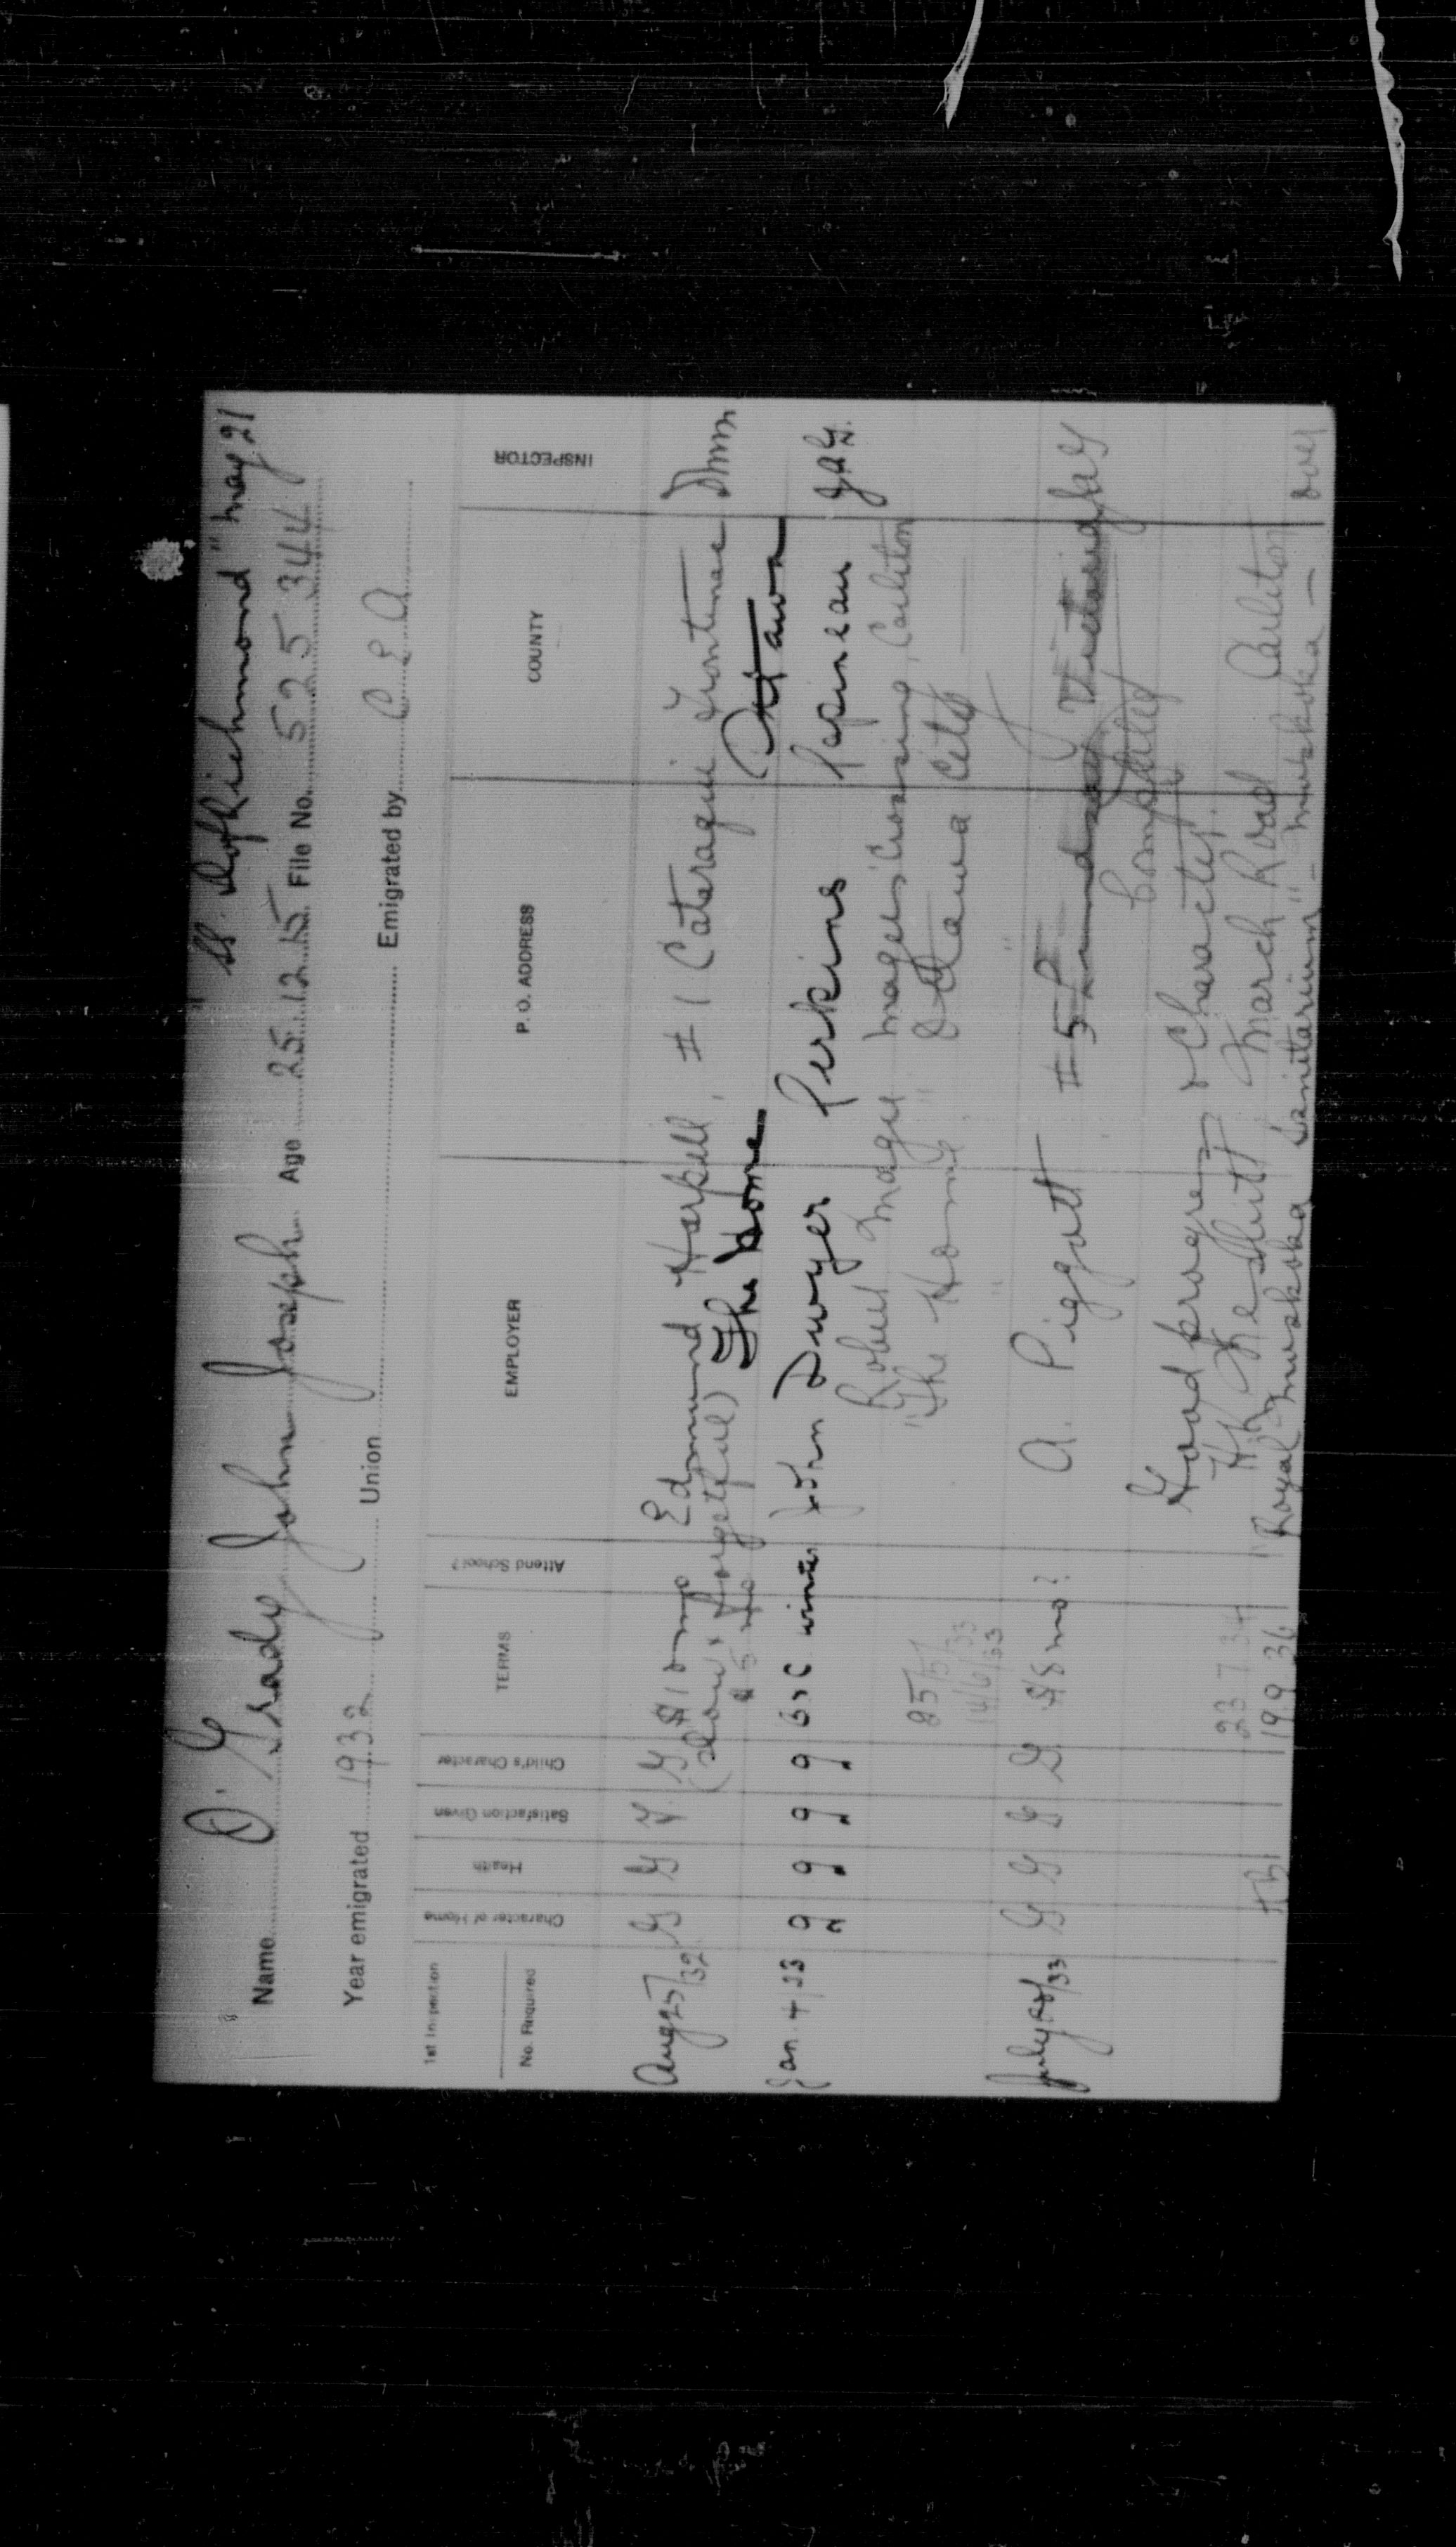 "D. of Richmond" May 21
Name O'Grady John Joseph Age 25.12.15 File No. 525 344
Year emigrated 1932 Union Emigrated by C. E. A.
1st Inspection
No. Required
Character of Home
Health
Satisfaction Given
Child's Character
TERMS
Attend School?
EMPLOYER
P. O. ADDRESS
COUNTY
INSPECTOR
Aug 25/32 G G F G $10 mo Edmund Harpell, #1 Cataraqui Frontenac
(slow & forgetful) The Home Ottawa
$5 mo
Jan 4/33 g g g g B & C winter John Dwyer Perkins Papineau
Robert Magee Magee's Crossing, Carleton
25/5/33 "The Home" Ottawa City
14/6/33
July 28/33 G G G G $8 mo? A. Piggott #5 Lindsay Victoria
Completed
Good progress & character.
23 7 34 March Road Carleton
19.9 36 "Royal Muskoka Sanitarium" - Muskoka -
over